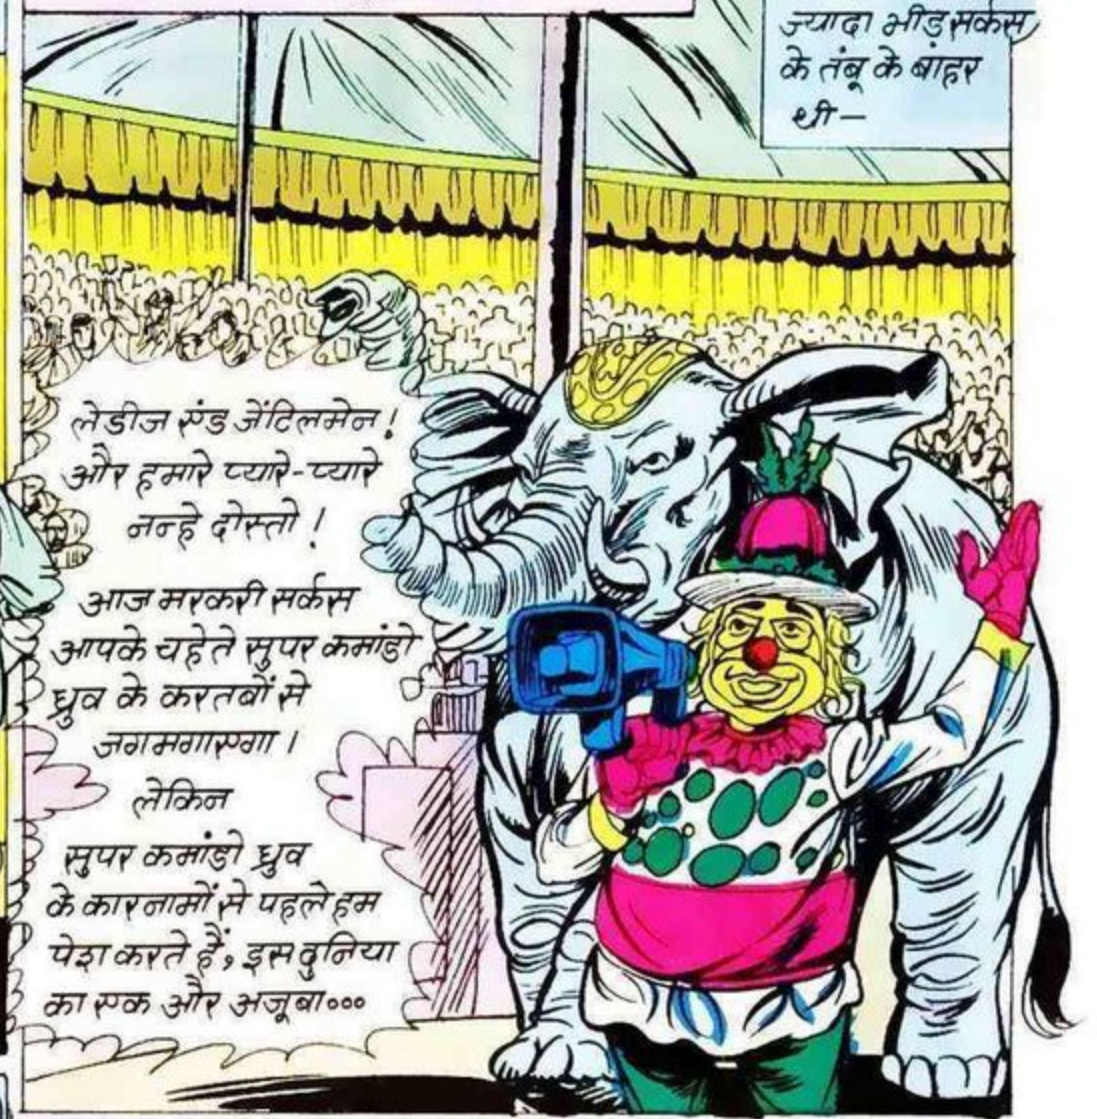 ज्यादा भीड़ सर्कस
के तंबू के बाहर
थी—
लेडीज एण्ड जेंटिलमेन!
और हमारे प्यारे-प्यारे
नन्हे दोस्तो!
आज मरकरी सर्कस
आपके चहेते सुपर कमांडो
ध्रुव के करतबों से
जगमगाएगा।
लेकिन
सुपर कमांडो ध्रुव
के कारनामों से पहले हम
पेश करते हैं, इस दुनिया
का एक और अजूबा०००